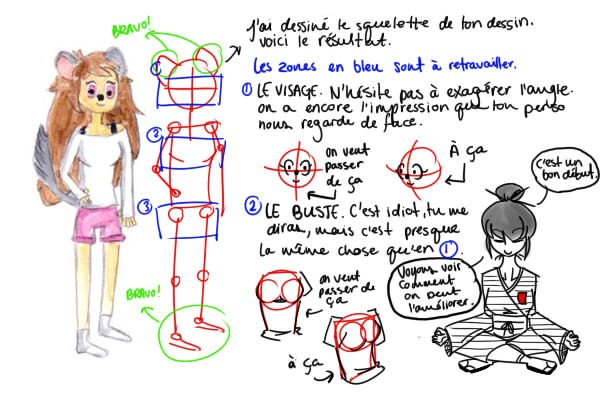 BRAVO!
J'ai dessiné le squelette de ton dessin.
voici le résultat.
Les zones en bleu sont à retravailler.
① LE VISAGE. N'hésite pas à exagérer l'angle.
on a encore l'impression que ton perso
nous regarde de face.
on veut
passer
de ça
À ça
② LE BUSTE. C'est idiot, tu me
diras, mais c'est presque
la même chose qu'en ①.
on veut
passer de
ça
à ça
c'est un
bon début.
Voyons voir
comment
on peut
l'améliorer.
①
②
③
BRAVO!